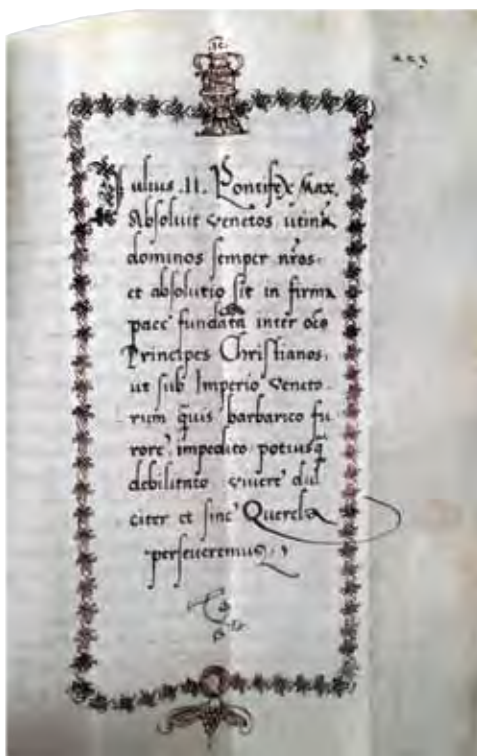 Iulius .II. Pontifex Max.
Absoluit venetos utinā
dominos semper nr̄os.
et absolutio sit in firma
pace fundata inter
Principes Christianos.
ut sub Imperio Veneto
rum quis barbarico fu
rore impedito potiusq̄
debilitato vivere dul
citer et sine Querela
perseueremus.